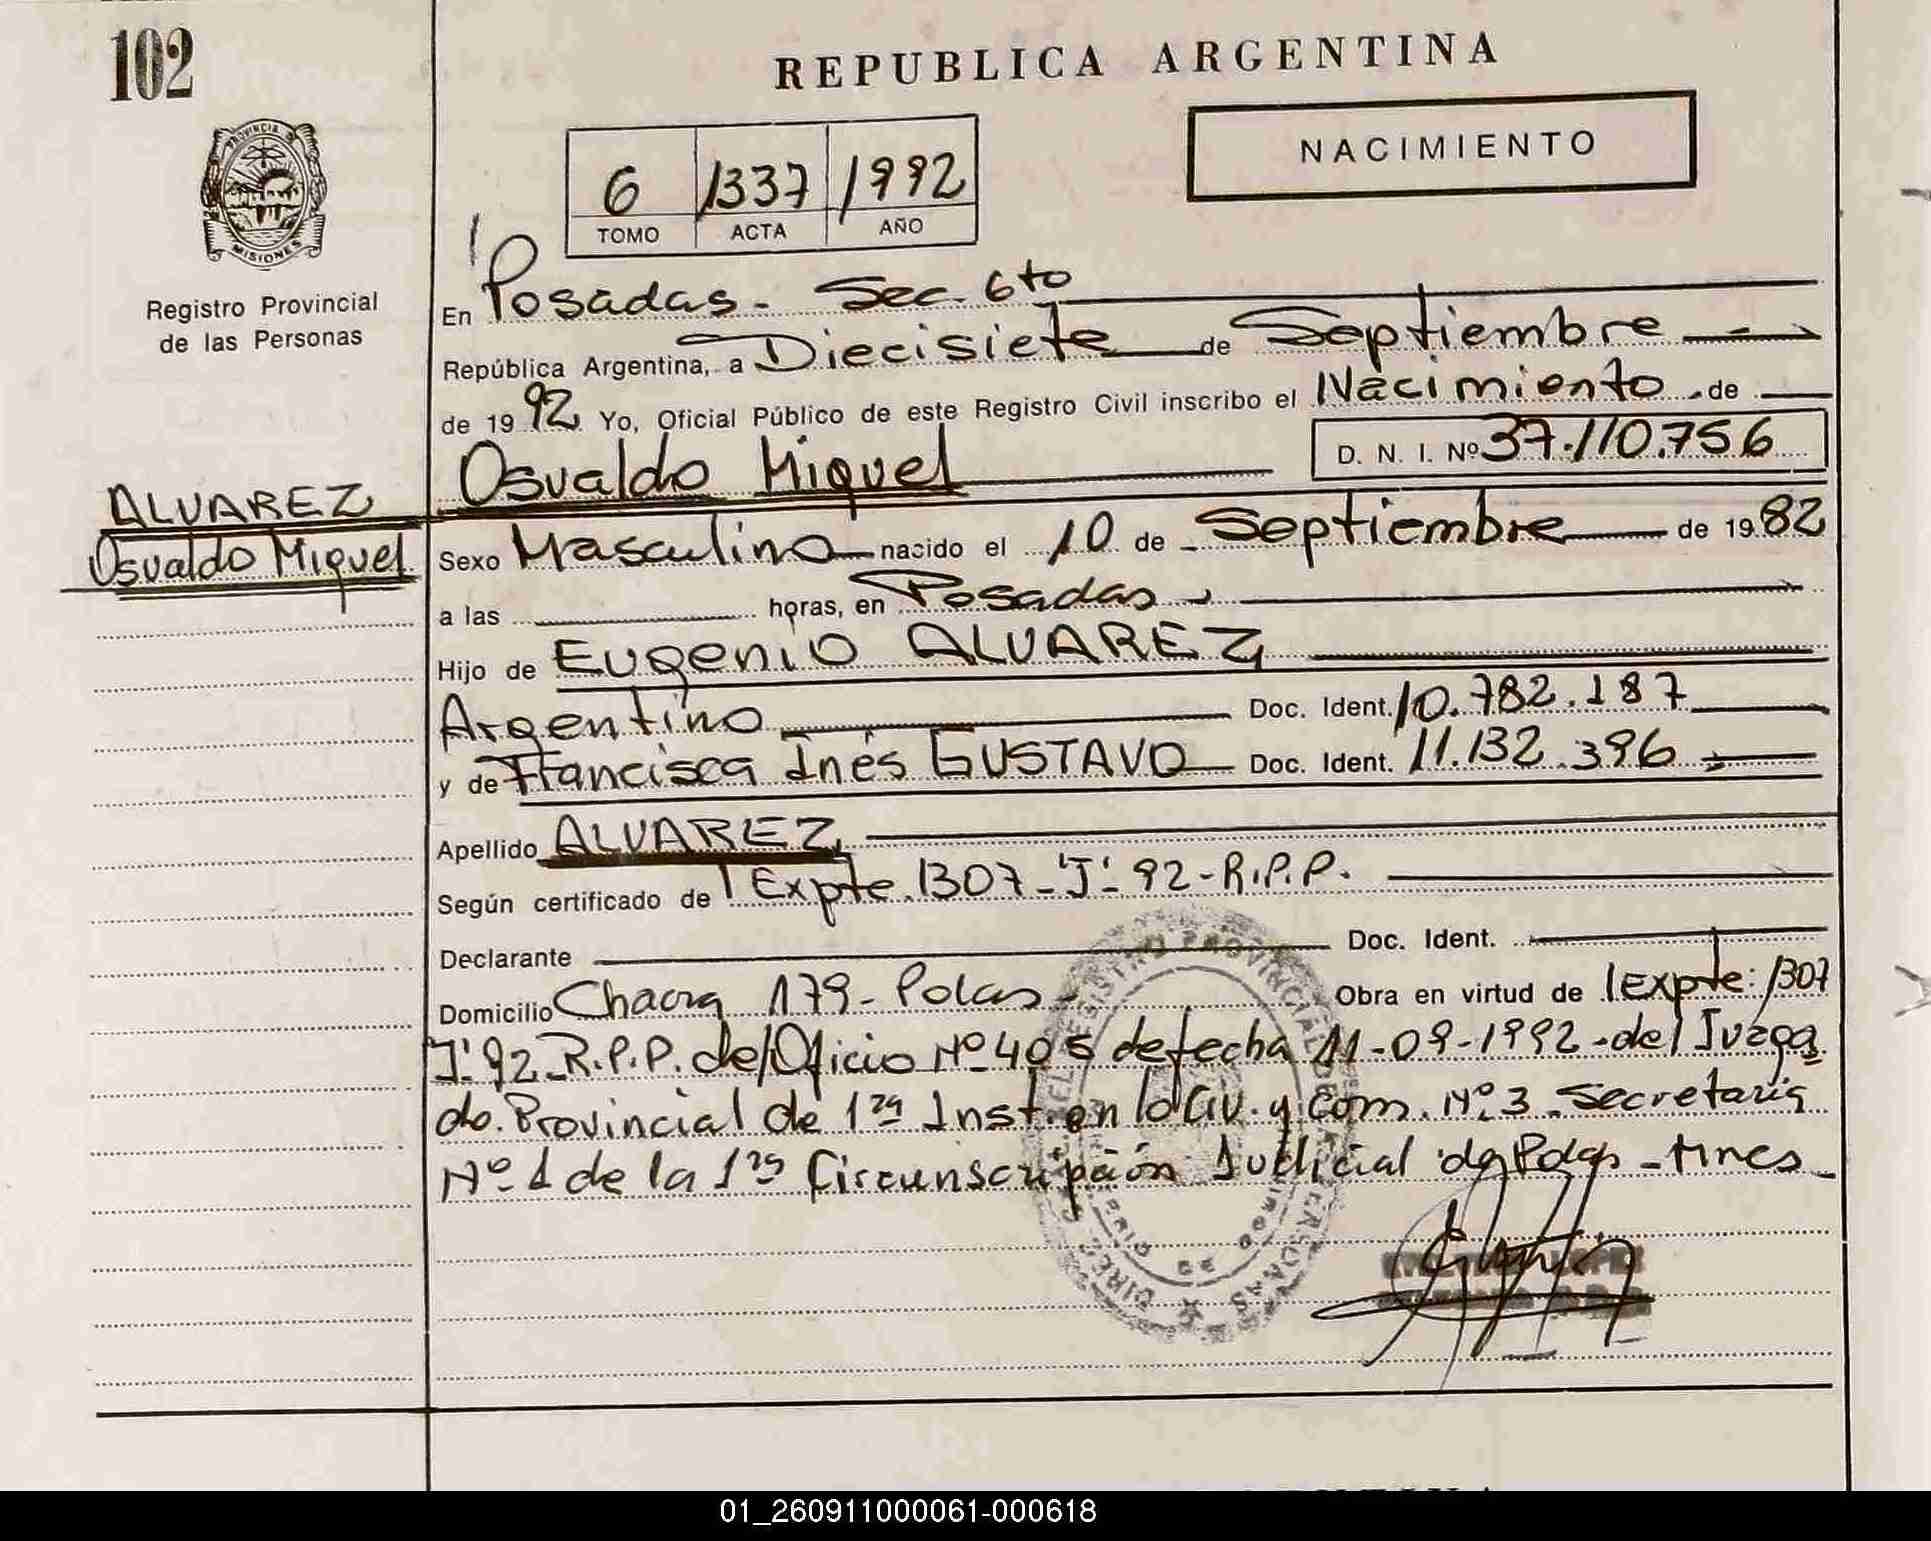 102
REPUBLICA ARGENTINA
NACIMIENTO
6 1337 1992
TOMO ACTA AÑO
PROVINCIA DE
MISIONES
Registro Provincial
de las Personas
En Posadas - Sec. 6to
República Argentina, a Diecisiete de Septiembre
de 1992 Yo, Oficial Público de este Registro Civil inscribo el Nacimiento de
Osvaldo Miguel D. N. I. Nº 37.110.756
ALVAREZ
Osvaldo Miguel
Sexo Masculino nacido el 10 de Septiembre de 1982
a las horas, en Posadas
Hijo de Eugenio ALVAREZ
Argentino Doc. Ident. 10.782.187
y de Francisca Inés GUSTAVO Doc. Ident. 11.132.396
Apellido ALVAREZ
Según certificado de Expte. 1307-"J"-92-R.P.P.
Declarante Doc. Ident.
Domicilio Chacra 179 - Pdas - Obra en virtud de Expte: 1307
"J" 92-R.P.P. de/Oficio Nº 405 de fecha 11-09-1992 - del Juzga
do Provincial de 1ra Inst. en lo Civ. y Com. Nº 3 Secretaria
Nº 1 de la 1ra Circunscripción Judicial de Pdas - Mnes
REGISTRO PROVINCIAL DE
PERSONAS
01_260911000061-000618